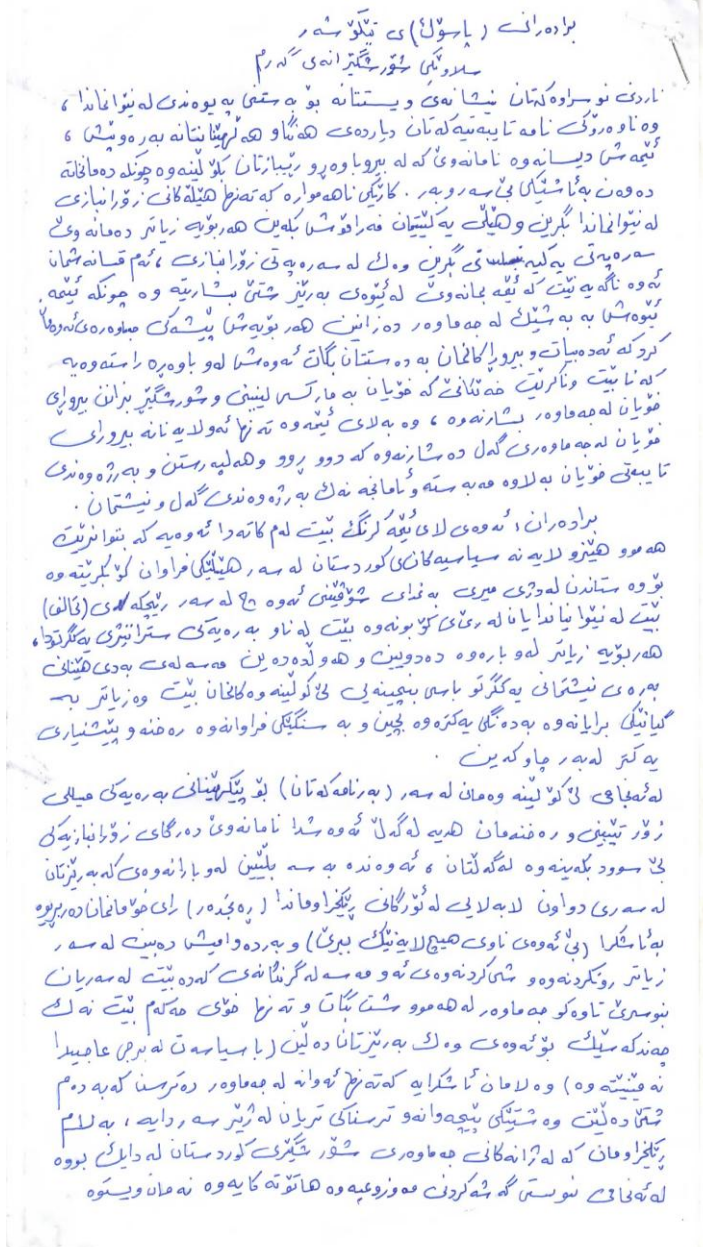 برادەرانی (پاسۆک)ی تێکۆشەر
سلاوێکی شۆڕشگێڕانەی گەرم
ناردنی نوسراوەکەتان نیشانەی ویستنتانە بۆ بەستنی پەیوەندی لەنێوانماندا ،
وەناوەرۆکی نامە تایبەتیەکەتان دیاردەی هەنگاو هەڵهێنانتانە بەرەوپێش ،
ئێمەش دیسانەوە نامانەوێ کە لە بیروباوەڕو ڕێبازتان بکۆڵینەوە چونکە دەمانخاتە
دەوەن بەئاشتیکی بێ سەروبەر . کارێکی ناهەموارە کە تەنها هێڵەکانی زۆرانبازی
لە نێوانماندا بگرین و هێڵی یەکێتیمان فەرامۆش بکەین هەربۆیە زیاتر دەمانەوێ
سەرەپەتی یەکیەتی بگرین وەک لە سەرەپەتی زۆرانبازی ، ئەم قسانەشمان
ئەوە ناگەیەنێت کە ئێمە بمانەوێ لەئێوەی بەرێز شتێ بشارینەوە چونکە ئێمە
ئێوەش بە بەشێک لە جەماوەر دەزانین هەربۆیەش پێشەکی جەماوەرەی ئەوەمان
کرد کە ئەدەبیات و بیروڕاکانمان بە دەستتان بگات ئەوەش لەو باوەڕە راستەوەیە
کە نابێت وناکرێت خەڵکانێ کە خۆیان بە مارکسی لینینی و شۆرشگێر بزانن بیروڕای
خۆیان لەجەماوەر بشارنەوە ، وە بەلای ئێمەوە تەنها ئەولایەنانە بیروڕای
خۆیان لەجەماوەری گەل دەشارنەوە کە دوو ڕوو وهەلپەرستن و بەرژەوەندی
تایبەتی خۆیان بەلاوە مەبەستەو ئامانجە نەک بەرژەوەندی گەل و نیشتمان .
برادەران ؛ ئەوەی لای ئێمە گرنگ بێت لەم کاتەدا ئەوەیە کە بتوانرێت
هەموو هێزو لایەنە سیاسیەکانی کوردستان لە سەر هێڵێکی فراوان کۆبکرێتەوە
بۆ وەستاندن لەدژی میری بەغدای شۆڤێنی ئەوە چ لە سەر رێچکەی (تحالف)
بێت لە نێوانیاندا یان لەرێی کۆبونەوە بێت لەناو بەرەیەکی ستراتیژی یەکگرتودا،
هەربۆیە زیاتر لەو بارەوە دەدوێین و هەوڵدەدەین مەسەلەی بەدی هێنانی
بەرەی نیشتمانی یەکگرتو باسی بنچینەیی لێکۆڵینەوەکانمان بێت وەزیاتر بە
گیانێکی برایانەوە بەدەنگی یەکترەوە بچین و بە سنگێکی فراوانەوە رەخنەو پێشنیاری
یەکتر لەبەر چاوکەین .
لەئەنجامی لێکۆڵینەوەمان لە سەر (بەرنامەکەتان) بۆ پێکهێنانی بەرەیەکی میللی
زۆر تێبینی و رەخنەمان هەیە لەگەڵ ئەوەشدا نامانەوێ دەرگای زۆرانبازیەکی
بێ سوود بکەینەوە لەگەڵتان ، ئەوەندە بە سە بڵێین لەو بارانەوەی کە بەرێزتان
لە سەری دواون لابەلایی لە ئۆرگانی رێکخراوماندا (رەنجدەر) رای خۆمانمان دەربڕیوە
بەئاشکرا (بێ ئەوەی ناوی هیچ لایەنێک ببرێ) و بەردەوامیش دەبین لە سەر
زیاتر رونکردنەوەو شی کردنەوەی ئەو مەسەلە گرنگانەی کەدەبێت لە سەریان
بنوسرێ تاوەکو جەماوەر لە هەموو شت بگات و تەنها خۆی حەکەم بێت نەک
چەندکەسێک بۆئەوەی وەک بەرێزتان دەڵێن (با سیاسەت لە برجی عاجیدا
نەمێنێتەوە) وە لامان ئاشکرایە کە تەنها ئەوانە لە جەماوەر دەترسن کە بە دەم
شتێ دەڵێن وە شتێکی پێچەوانەو ترسناکی تریان لە ژێر سەردایە ، بەلام
رێکخراومان کە لە ژانەکانی جەماوەری شۆرشگێری کوردستان لە دایک بووە
لەئەنجامی پێویستی گەشەکردنی مەوزوعیەوە هاتۆتە کایەوە نەمان ویستوە